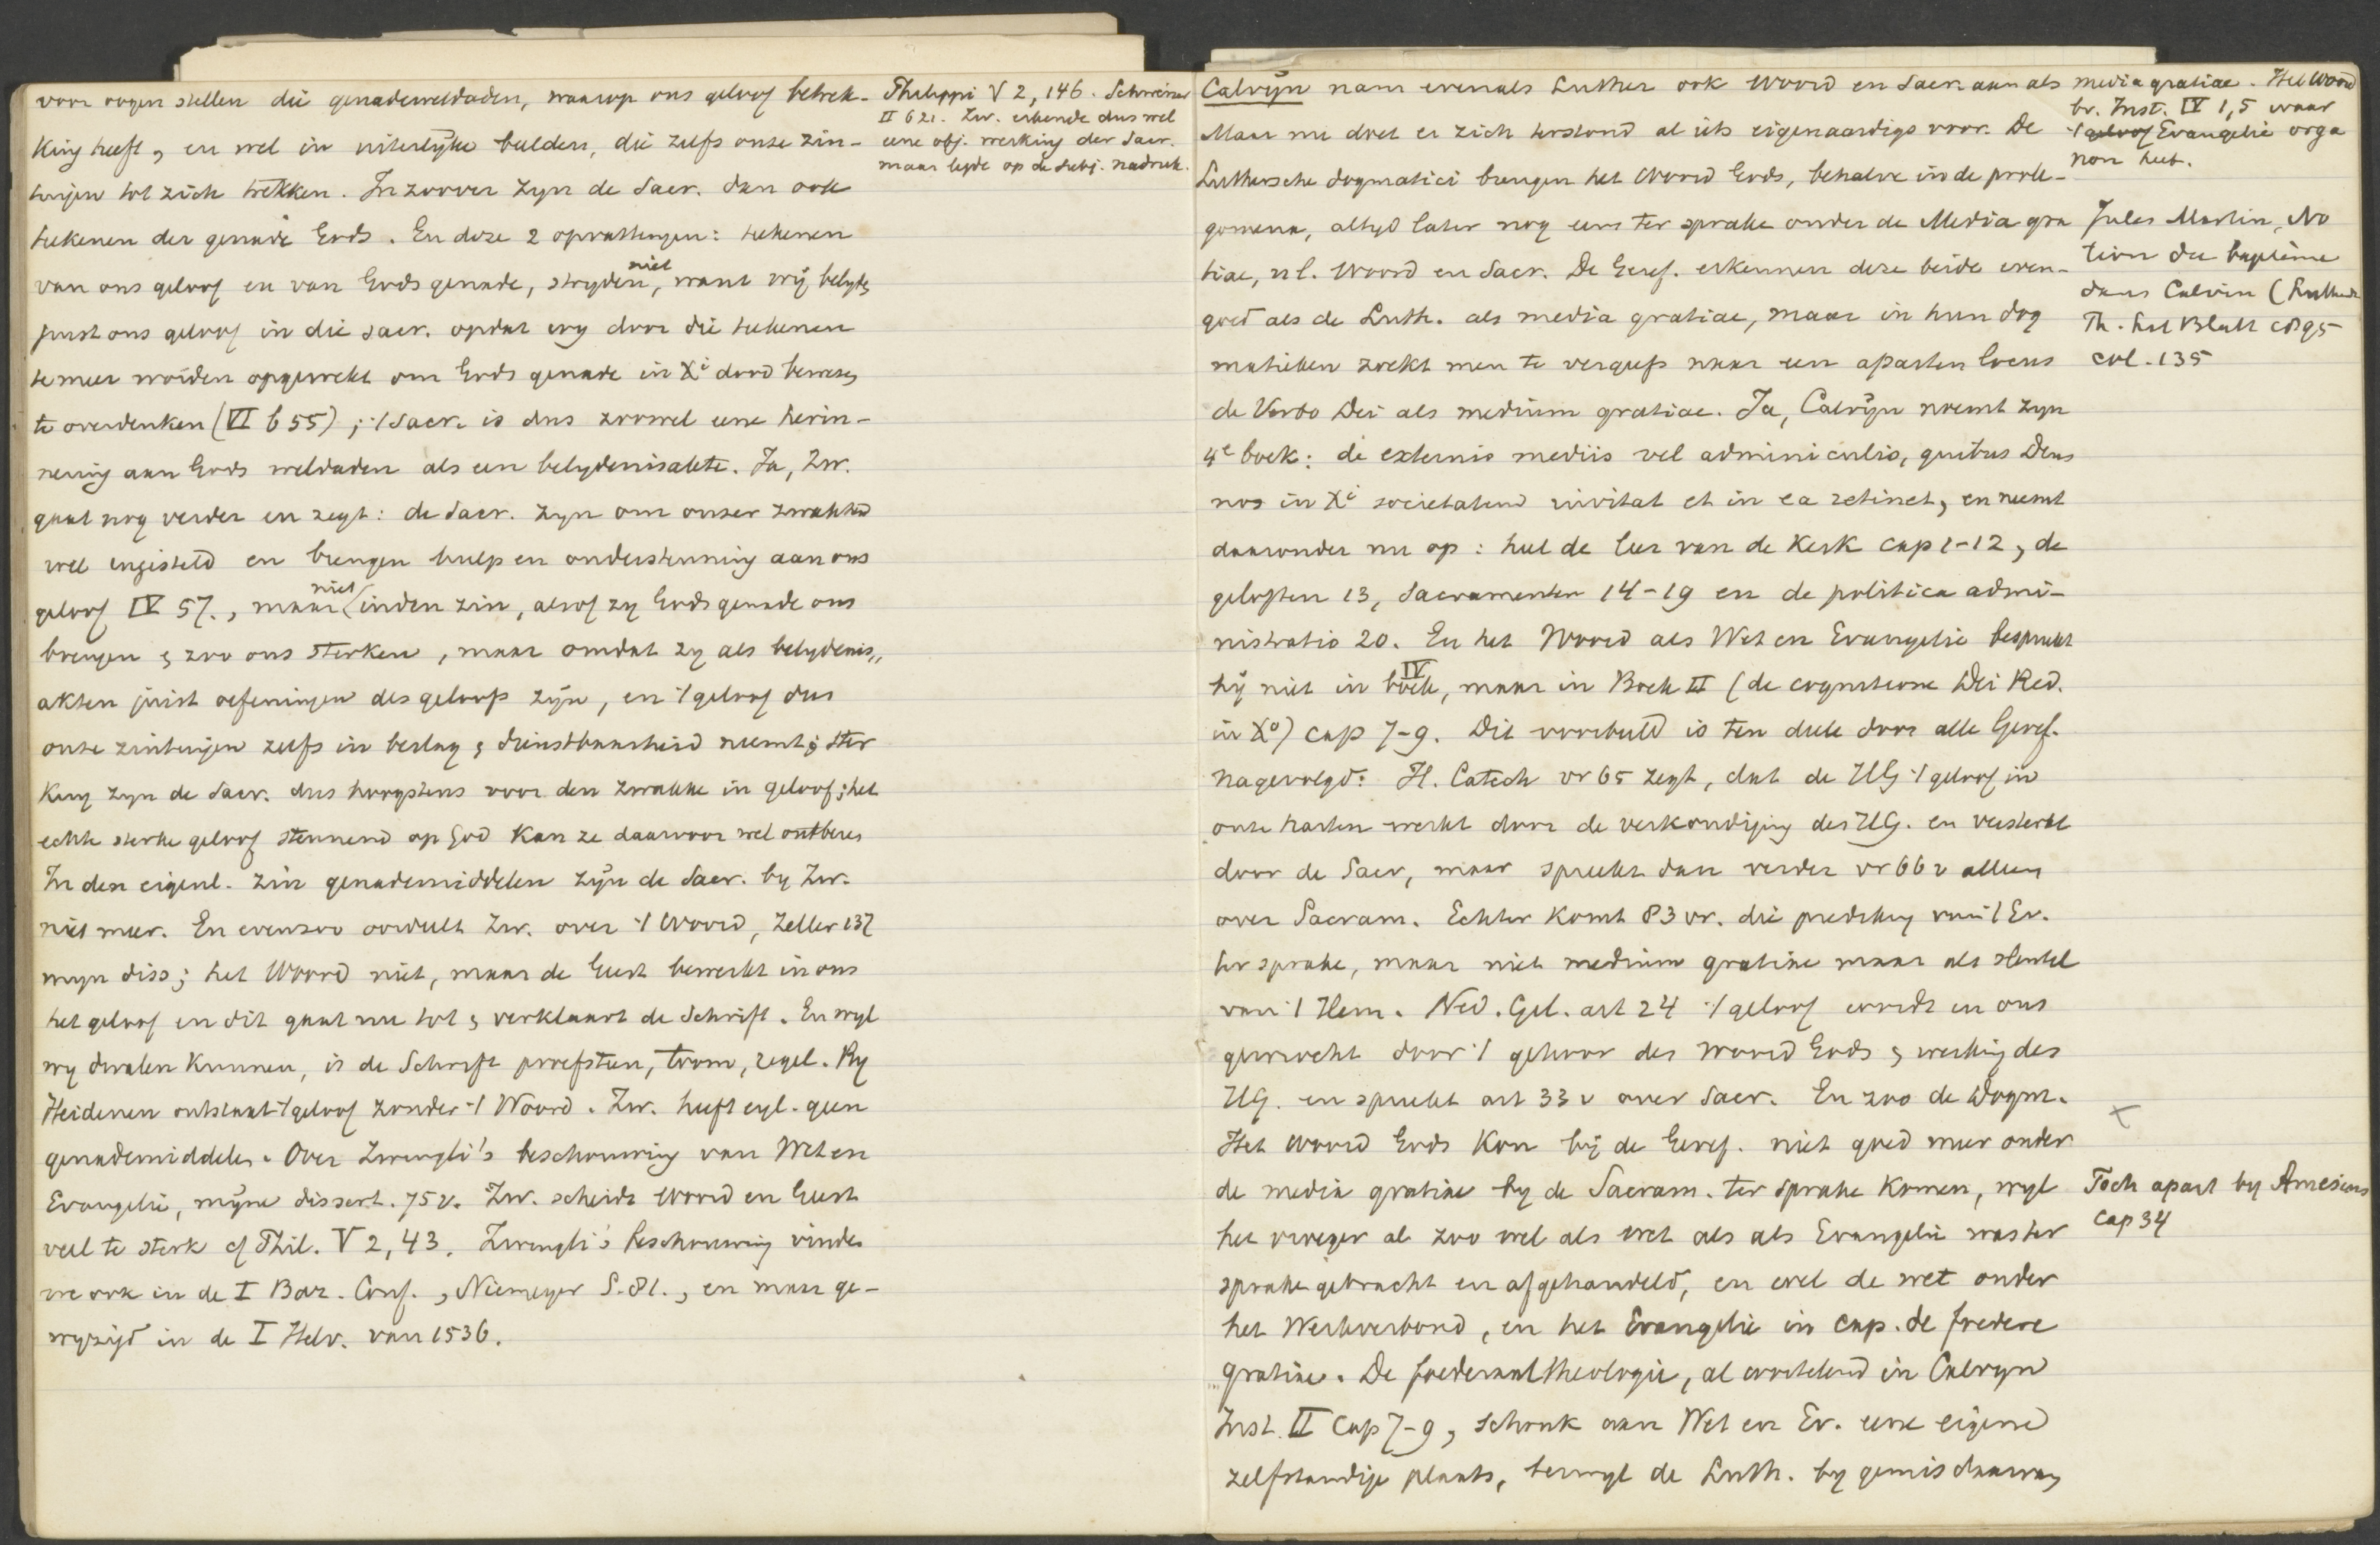 voor oogen stellen die genadeweldaden, waarop ons geloof betrek-
king heeft, en wel in uiterlyke beelden, die zelfs onze zin-
tuigen tot zich trekken. In zoover zyn de Sacr. dan ook
teekenen der genade Gods. En deze 2 opvattingen: teekenen
van ons geloof en van Gods genade, stryden niet, want wij belyden
juist ons geloof in die sacr. opdat wy door die teekenen
te meer worden opgewekt om Gods genade in Xi dood bewezen
te overdenken (VI b 55); 't Sacr. is dus zoowel eene herin-
nering aan Gods weldaden als een belydenisakte. Ja, Zw.
gaat nog verder en zegt: de Sacr. zyn om onzer zwakheid
wel ingesteld en brengen hulp en ondersteuning aan ons
geloof IV 57., maar niet in den zin, alsof zy Gods genade ons
brengen & zoo ons sterken, maar omdat zy als belydenis,,
akten juist oefeningen des geloofs zijn, en 't geloof dus
onze zintuigen zelfs in beslag & dienstbaarheid neemt; ster
king zyn de Sacr. dus hoogstens voor den zwakke in geloof; het
echte sterke geloof steunend op God kan ze daarvoor wel ontberen
In den eigenl. zin genademiddelen zijn de Sacr. by Zw.
niet meer. En evenzoo oordeelt Zw. over 't Woord, Zeller 137
myn diss; het Woord niet, maar de Geest bewerkt in ons
het geloof en dit gaat nu tot & verklaart de Schrift. En wyl
wy dwalen kunnen, is de Schrift proefsteen, toom, regel. By
Heidenen ontstaat 't geloof zonder 't Woord. Zw. heeft eyl. geen
genademiddelen. Over Zwingli's beschouwing van Wet en
Evangelie, mijne dissert. 75 v. Zw. scheidt woord en Geest
veel te sterk cf Phil. V 2, 43. Zwingli's beschouwing vinden
we ook in de I Baz. Conf., Niemeyer S. 81., en maar ge-
wyzigd in de I Helv. van 1536.
Philippi V 2, 146. Schweizer
II 621. Zw. erkende dus wel
eene obj. werking der Sacr.
maar legde op de subj. nadruk.
Calvijn nam evenals Luther ook Woord en Sacr. aan als media gratiae. Het Woord
Maar nu doet er zich terstond al iets eigenaardigs voor. De
Luthersche dogmatici brengen het Woord Gods, behalve in de prole-
gomena, altyd later nog eens ter sprake onder de Media gra
tiae, nl. Woord en Sacr. De Geref. erkennen deze beide even-
goed als de Luth. als media gratiae, maar in hun dog
matieken zoekt men te vergeefs naar een aparten locus
de Verbo Dei als medium gratiae. Ja, Calvijn noemt zyn
4e boek: de externis mediis vel adminiculis, quibus Deus
nos in Xi societatem invitat et in ea retinet, en neemt
daaronder nu op: heel de leer van de Kerk cap 1-12, de
geloften 13, Sacramenten 14-19 en de politica admi-
nistratio 20. En het Woord als Wet en Evangelie bespreekt
hij niet in boek IV, maar in Boek II (de cognitione Dei Red.
in Xo) cap 7-9. Dit voorbeeld is ten deele door alle Geref.
nagevolgd: H. Catech vr 65 zegt, dat de HG 't geloof in
onze harten werkt door de verkondiging des HG. en versterkt
door de Sacr, maar spreekt dan verder vr 66 v alleen
over Sacram. Echter komt 83 vr. die prediking van 't Ev.
ter sprake, maar niet medium gratiae maar als sleutel
van 't Hem. Ned. Gel. art 24 't geloof wordt in ons
gewrocht door 't gehoor des woord Gods & werking des
HG. en spreekt art 33 v over Sacr. En zoo de Dogm.
Het Woord Gods kon bij de Geref. niet goed meer onder
de media gratiae by de Sacram. ter sprake komen, wyl
het vroeger al zoo wel als wet als als Evangelie was ter
sprake gebracht en afgehandeld, en wel de wet onder
het Werkverbond, en het Evangelie in cap. de foedere
gratiae. De foederaaltheologie, al wortelend in Calvyn
Inst. II cap 7-9, schonk aan Wet en Ev. eene eigene
zelfstandige plaats, terwyl de Luth. by gemis daarvan
br. Inst. IV 1,5 waar
't geloof Evangelie orga
non heet.
Jules Martin, No
tion du baptême
dans Calvin (
Th. Lit Blatt 1895
col. 135
Toch apart by Amesius
cap 34